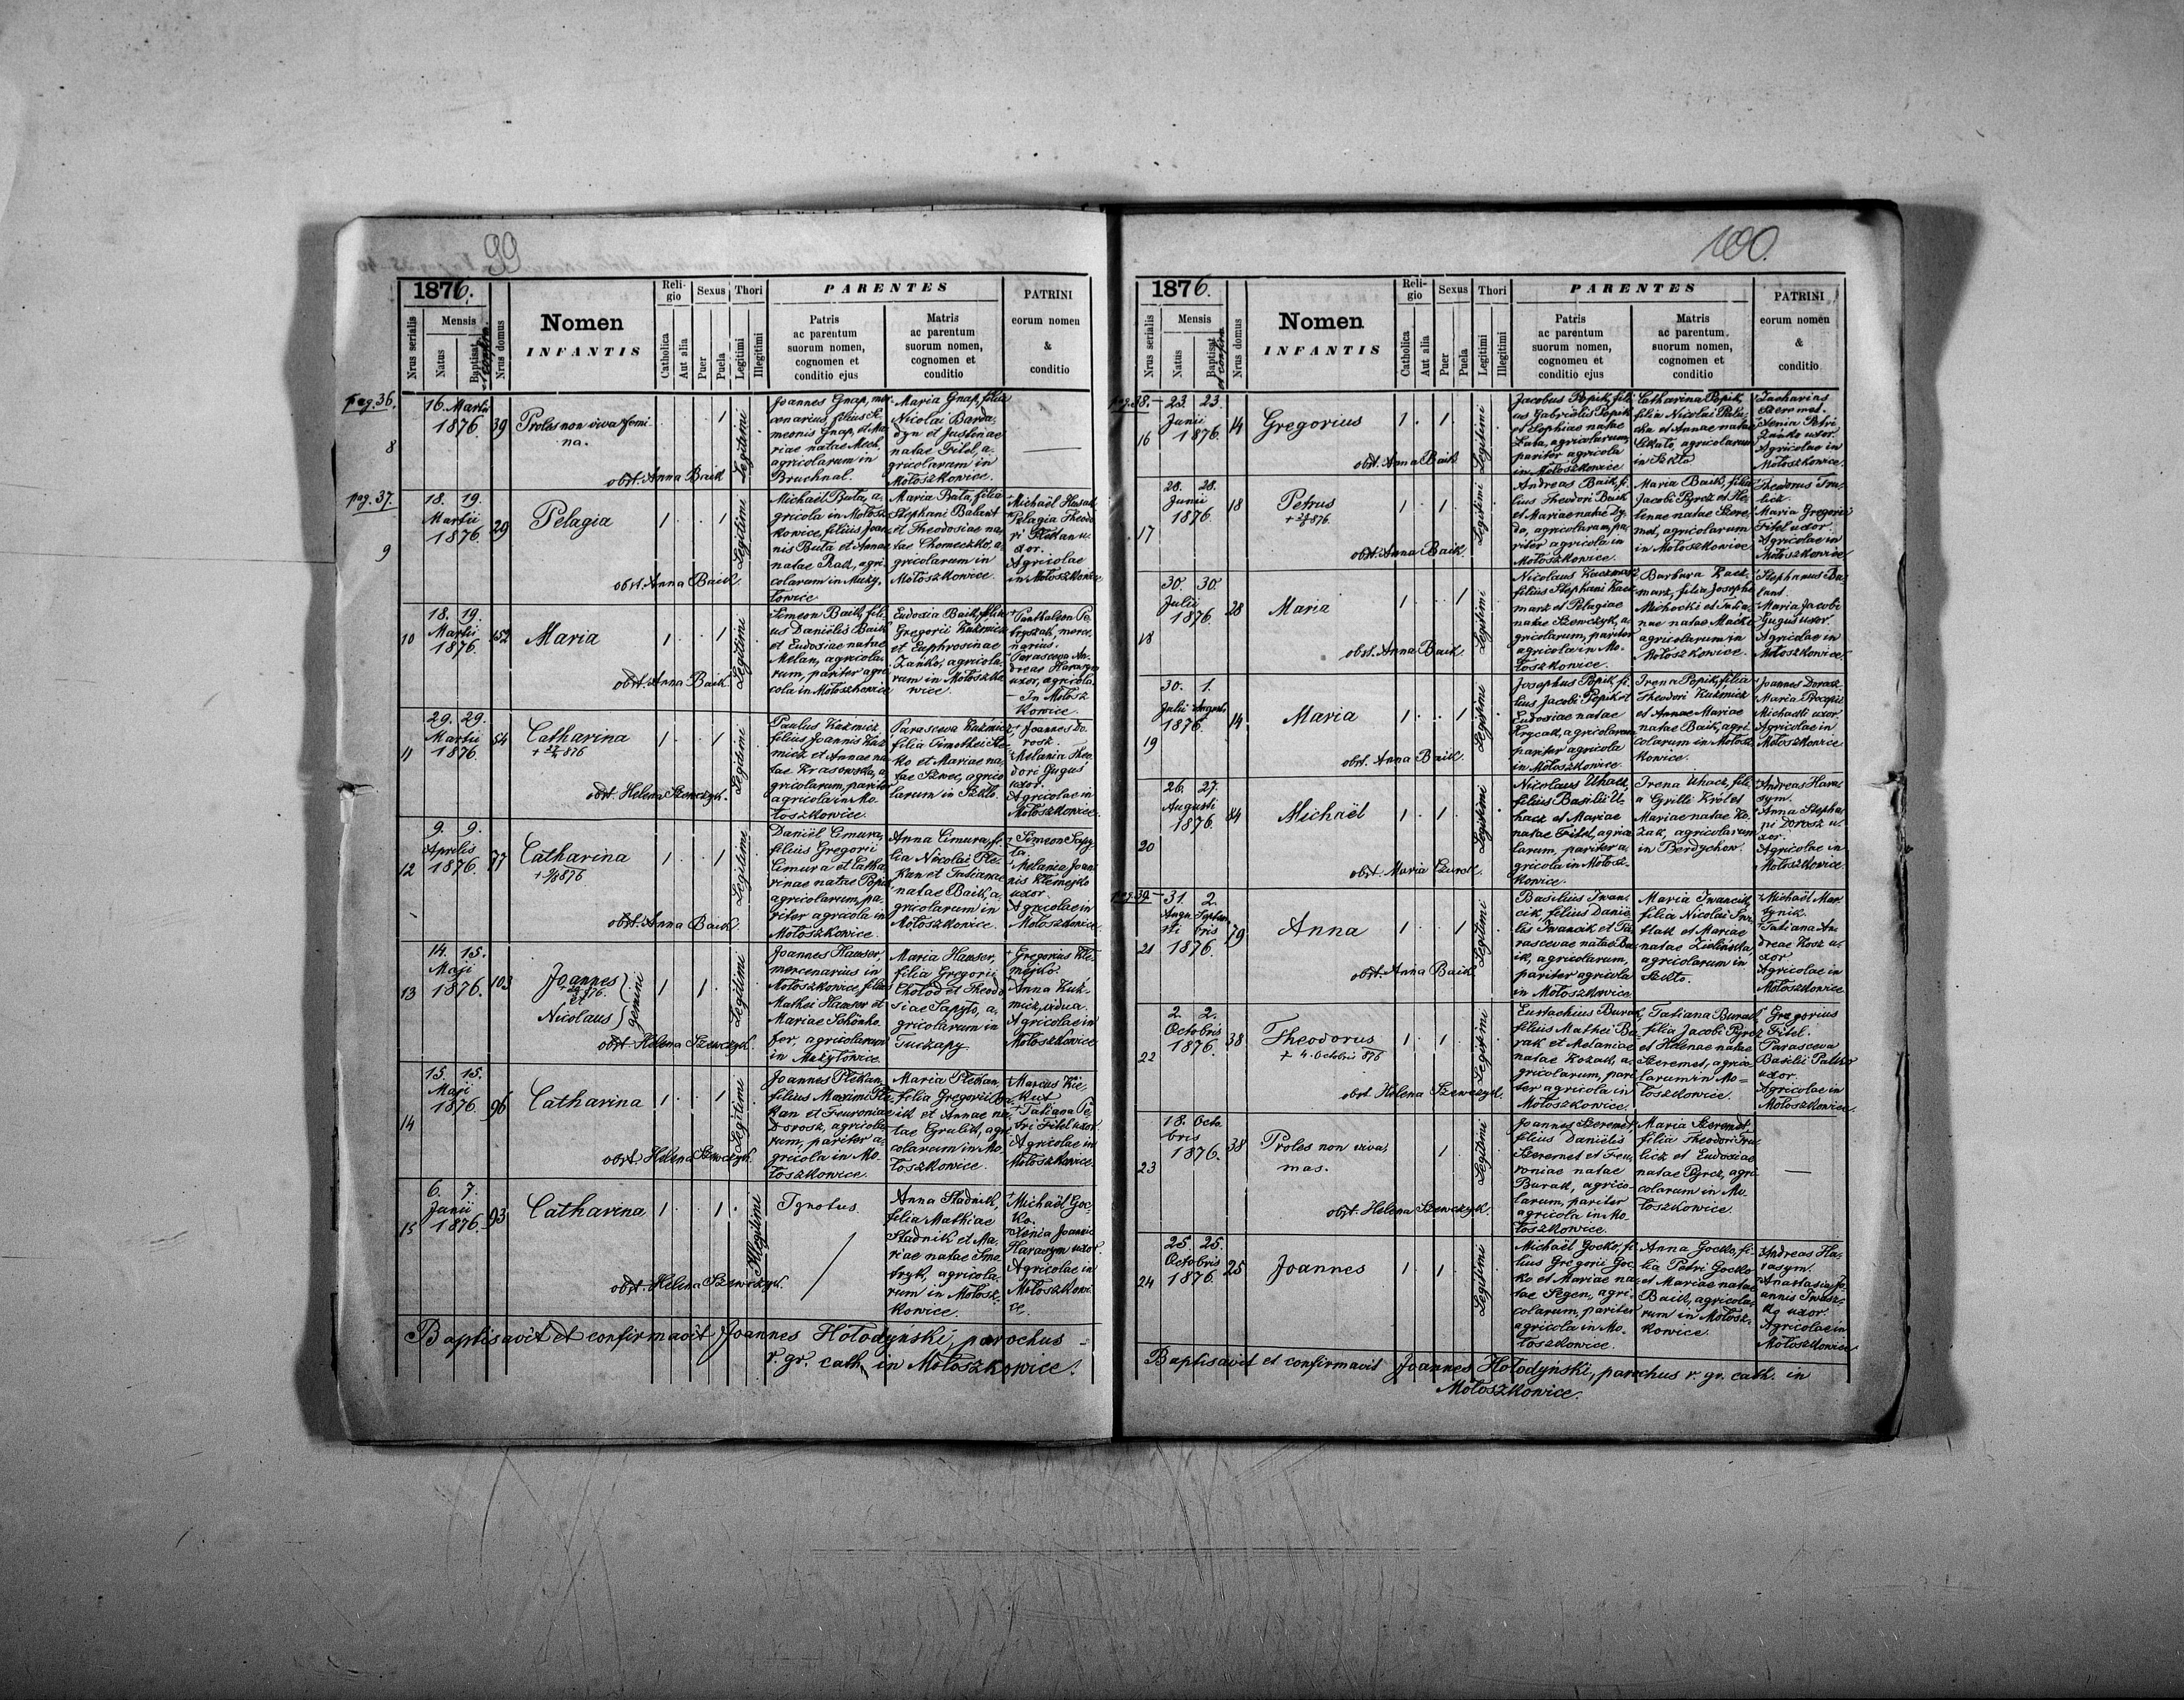 99
1876.
Nrus serialis
Mensis
Natus
Baptisat.
et confirm.
Nrus domus
Nomen
INFANTIS
Reli-
gio
Catholica
Aut alia
Sexus
Puer
Puela
Thori
Legitimi
Illegitimi
PARENTES
Patris
ac parentum
suorum nomen,
cognomen et
conditio ejus
Matris
ac parentum
suorum nomen,
cognomen et
conditio
PATRINI
eorum nomen
&
conditio
pag. 36.
8
16. Martii
1876.
39
Proles non viva femi
na.
obst. Anna Baik
1
Legitimi
Joannes Gnap, mer
cenarius, filius Si
meonis Gnap, et Ma
riae natae Moch,
agricolarum in
Bruchnal.
Maria Gnap, filia
Nicolai Borda
dyn et Justinae
natae Fitel, a-
gricolarum in
Mołoszkowice.
pag. 37.
9
18. 19.
Martii
1876.
29
Pelagia
obst. Anna Baik.
1 . . 1
Legitimi
Michaël Buta, a-
gricola in Mołosz
kowice, filius Joan
nis Buta et Annae
natae Rak, agri
colarum in Muży-
łowice
Maria Buta, filia
Stephani Balant
et Theodosiae na
tae Chomeczko, a-
gricolarum in
Mołoszkowice.
Michaël
Pelagia Theodo
ri Plekan u-
xor.
Agricolae
in Mołoszkowice
10
18. 19.
Martii
1876.
152
Maria
obst. Anna Baik.
1 . . 1
Legitimi
Simeon Baik, fili-
us Daniëlis Baik
et Eudosiae natae
Melan, agricola
rum, pariter agri
cola in Mołoszkowice
Eudoxia Baik, filia
Gregorii Kuźmicz
et Euphrosinae
Zańko, agricola-
rum in Mołoszko
wice.
Panthaleon Pe
tryszak, merce
narius.
Parasceva An
dreae Harasym
uxor, agricola.
In Mołosz
kowice.
11
29. 29.
Martii
1876.
54
Catharina
obst. Helena Szewczyk.
1 . . 1
Legitimi
Paulus Kuźmicz
filius Joannis Kuź
micz et Annae na
tae Krasowska, a-
gricolarum, pariter
agricola in Mo.
łoszkowice.
Parasceva Kuźmicz,
filia Timothei
ko et Mariae na
tae Szwec, agrico
larum in Szkło.
Joannes Do
rosz.
Melania Theo
dori Guguś
uxor.
Agricolae in
Mołoszkowice.
12
9. 9.
Aprilis
1876.
77
Catharina
obst. Anna Baik.
1 . . 1
Legitimi
Daniël Cimura,
filius Gregorii
Cimura et Catha
rinae natae Popik
agricolarum, pa-
riter agricola in
Mołoszkowice.
Anna Cimura, fi-
lia Nicolai Ple-
kan et Tatianae
natae Baik, a-
gricolarum in
Mołoszkowice.
Simeon Sapy
ta.
Melania Joan
nis Klemejko
uxor
Agricolae in
Mołoszkowice.
13
14. 15.
Maji
1876.
103
Joannes
et
Nicolaus
gemini
obst. Helena Szewczyk.
1 . 1
Legitimi
Joannes Hauser,
mercenarius in
Mołoszkowice filius
Mathei Hauser et
Mariae Schönho
fer, agricolarum
in Mużyłowice.
Maria Hauser,
filia Gregorii
Chołod et Theodo
siae Sapyto, a-
gricolarum in
Tuczapy
Gregorius Kle
mejko.
Anna Kuź-
micz, vidua.
Agricolae in
Mołoszkowice
14
15. 15.
Maji
1876.
96
Catharina
obst. Helena Szewczyk.
1 . . 1
Legitimi
Joannes Plekan,
filius Maximi Ple
kan et Feuroniae
Dorosz, agricola
rum, pariter a-
gricola in Mo-
łoszkowice.
Maria Plekan,
filia Gregorii Ba-
ik et Annae na
tae Cyrulik, agri
colarum in Mo.
łoszkowice.
Marcus Kie-
kut
Tatiana Pe-
tri Fitel uxor
Agricolae in
Mołoszkowice.
15
6. 7.
Junii
1876.
93
Catharina
obst. Helena Szewczyk.
1 . . 1
Illegitimi
Ignotus.
Anna Stadnik,
filia Mathiae
Stadnik et Ma-
riae natae Smo
tryk, agricola-
rum in Mołosz-
kowice.
Michaël Goc-
ko.
Xenia Joannis
Harasym uxor.
Agricolae in
Mołoszkowi-
ce.
Baptisavit et confirmavit Joannes Hołodyński, parochus
r. gr. cath. in Mołoszkowice.
100.
1876.
Nrus serialis
Mensis
Natus
Baptisat.
et confirm.
Nrus domus
Nomen
INFANTIS
Reli-
gio
Catholica
Aut alia
Sexus
Puer
Puela
Thori
Legitimi
Illegitimi
PARENTES
Patris
ac parentum
suorum nomen,
cognomen et
conditio ejus
Matris
ac parentum
suorum nomen,
cognomen et
conditio
PATRINI
eorum nomen
&
conditio
pag. 38.
16
23. 23.
Junii
1876.
14
Gregorius
obst. Anna Baik
1 . 1 .
Legitimi
Jacobus Popik, fili
us Gabriëlis Popik
et Sophiae natae
Łuta, agricolarum,
pariter agricola
in Mołoszkowice
Catharina Popik,
filia Nicolai
et Annae natae
agricolarum
in Szkło
Zacharias
Szeremet.
Xenia Petri
Zańko uxor.
Agricolae in
Mołoszkowice.
17
28. 28.
Junii
1876.
18
Petrus
obst. Anna Baik.
1 . 1 .
Legitimi
Andreas Baik, fi-
lius Theodori Baik
et Mariae natae Dy-
da, agricolarum, pa-
riter agricola in
Mołoszkowice.
Maria Baik, filia
Jacobi Pyrcz et He-
lenae natae Szere-
met, agricolarum
in Mołoszkowice
Theodorus Iru-
licz.
Maria Gregorii
Fitel uxor.
Agricolae in
Mołoszkowice
18
30. 30.
Julii
1876.
28
Maria
obst. Anna Baik
1 . . 1
Legitimi
Nicolaus Kaczmarz
filius Stephani Kacz
marz et Pelagiae
natae Szewczyk, a-
gricolarum, pariter
agricola in Mo-
łoszkowice.
Barbara Kacz-
marz, filia Josephi
Michocki et Tatia-
nae natae Maćko
agricolarum in
Mołoszkowice.
Stephanus Ba-
lant.
Maria Jacobi
Guguś uxor.
Agricolae in
Mołoszkowice.
19
30. 1.
Julii Augusti
1876.
14
Maria
obst. Anna Baik.
1 . . 1
Legitimi
Josephus Popik, fi-
lius Jacobi Popik et
Eudosiae natae
agricolarum
pariter agricola
in Mołoszkowice.
Irena Popik, filia
Theodori Kuźmicz
et Annae Mariae
natae Baik, agri-
colarum in Mołosz
kowice.
Joannes Dorosz
Maria Procopii
uxor.
Agricolae in
Mołoszkowice
20
26. 27.
Augusti
1876.
84
Michaël
obst. Maria Szurek.
1 . 1 .
Legitimi
Nicolaus Uhacz,
filius Basilii U-
hacz et Mariae
natae Fitel, agrico
larum, pariter a-
gricola in Mołosz-
kowice.
Irena Uhacz, fili-
a Cyrilli Król et
Mariae natae Ko-
zak, agricolarum
in Berdychow.
Andreas Hara-
sym.
Anna Stepha-
ni Dorosz u-
xor.
Agricolae in
Mołoszkowice.
pag. 39.
21
31. 2.
Augu Septem
sti bris
1876.
79
Anna
obst. Anna Baik
1 . . 1
Legitimi
Basilius Iwan-
cik, filius Danië-
lis Iwancik et Pa
rascevae natae Ba-
ik, agricolarum,
pariter agricola
in Mołoszkowice
Maria Iwancik,
filia Nicolai
et Mariae
natae Zielińska
agricolarum in
Szkło.
Michaël Mar-
tynik.
Tatiana An
dreae Kosz u-
xor
Agricolae in
Mołoszkowice
22
2. 2.
Octobris
1876.
38
Theodorus
+ 4. Octobris 876
obst. Helena Szewczyk.
1 . 1 .
Legitimi
Eustachius Burak,
filius Mathei Bu-
rak et Melaniae
natae Kozak, a-
gricolarum, pari
ter agricola in
Mołoszkowice.
Tatiana Burak,
filia Jacobi Pyrcz
et Helenae natae
Szeremet, agrico
larum in Mo-
łoszkowice.
Gregorius
Fitel.
Parasceva
Basilii
uxor.
Agricolae in
Mołoszkowice.
23
18. Octo
bris
1876.
38
Proles non viva,
mas.
obst. Helena Szewczyk.
1
Legitimi
Joannes Szeremet,
filius Daniëlis
Szeremet et Feu-
roniae natae
Burak, agrico-
larum, pariter
agricola in Mo-
łoszkowice.
Maria Szeremet,
filia Theodori Iru-
licz et Eudosiae
natae Pyrcz, agri
colarum in Mo-
łoszkowice.
24
25. 25.
Octobris
1876.
25
Joannes
1 . 1 .
Legitimi
Michaël Gocko, fi-
lius Gregorii Goc-
ko et Mariae na-
tae Segen, agri-
colarum, pariter
agricola in Mo-
łoszkowice.
Anna Gocko, fi-
lia Petri Gocko
et Mariae natae
Baik, agricola-
rum in Mołosz-
kowice.
Andreas Ha-
rasym.
Anastasia Jo-
annis
uxor.
Agricolae in
Mołoszkowice
Baptisavit et confirmavit Joannes Hołodyński, parochus r. gr. cath. in
Mołoszkowice.